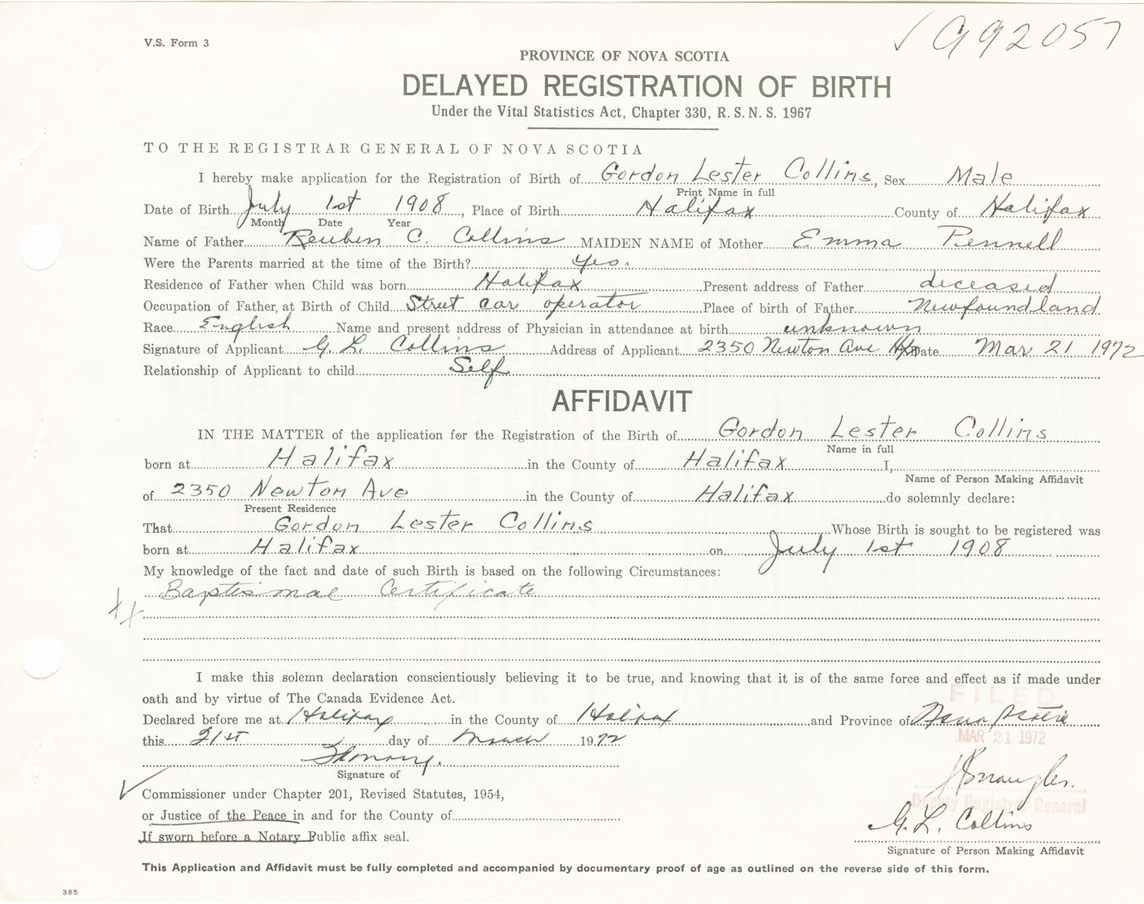 V.S. Form 3
√ 992057
PROVINCE OF NOVA SCOTIA
DELAYED REGISTRATION OF BIRTH
Under the Vital Statistics Act, Chapter 330, R. S. N. S. 1967
TO THE REGISTRAR GENERAL OF NOVA SCOTIA
I hereby make application for the Registration of Birth of Gordon Lester Collins, Sex Male
Print Name in full
Date of Birth July 1st 1908, Place of Birth Halifax County of Halifax
Month Date Year
Name of Father Reuben C. Collins MAIDEN NAME of Mother Emma Pennell
Were the Parents married at the time of the Birth? Yes.
Residence of Father when Child was born Halifax Present address of Father deceased
Occupation of Father, at Birth of Child Street car operator Place of birth of Father Newfoundland
Race English Name and present address of Physician in attendance at birth unknown
Signature of Applicant G. L. Collins Address of Applicant 2350 Newton Ave Hfx Date Mar 21 1972
Relationship of Applicant to child Self
AFFIDAVIT
IN THE MATTER of the application for the Registration of the Birth of Gordon Lester Collins
Name in full
born at Halifax in the County of Halifax I,
Name of Person Making Affidavit
of 2350 Newton Ave in the County of Halifax do solemnly declare:
Present Residence
That Gordon Lester Collins Whose Birth is sought to be registered was
born at Halifax on July 1st 1908
My knowledge of the fact and date of such Birth is based on the following Circumstances:
Baptismal Certificate
I make this solemn declaration conscientiously believing it to be true, and knowing that it is of the same force and effect as if made under
oath and by virtue of The Canada Evidence Act.
FILED
Declared before me at Halifax in the County of Halifax and Province of Nova Scotia
this 21st day of March 1972
MAR 21 1972
Signature of
Commissioner under Chapter 201, Revised Statutes, 1954,
Deputy Registrar General
or Justice of the Peace in and for the County of
G. L. Collins
If sworn before a Notary Public affix seal.
Signature of Person Making Affidavit
This Application and Affidavit must be fully completed and accompanied by documentary proof of age as outlined on the reverse side of this form.
385